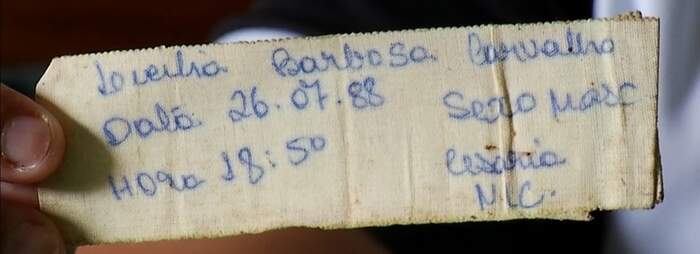 Barbosa Carvalho
Data 26.07.88 Sexo Masc
Hora 18:50 Cesaria